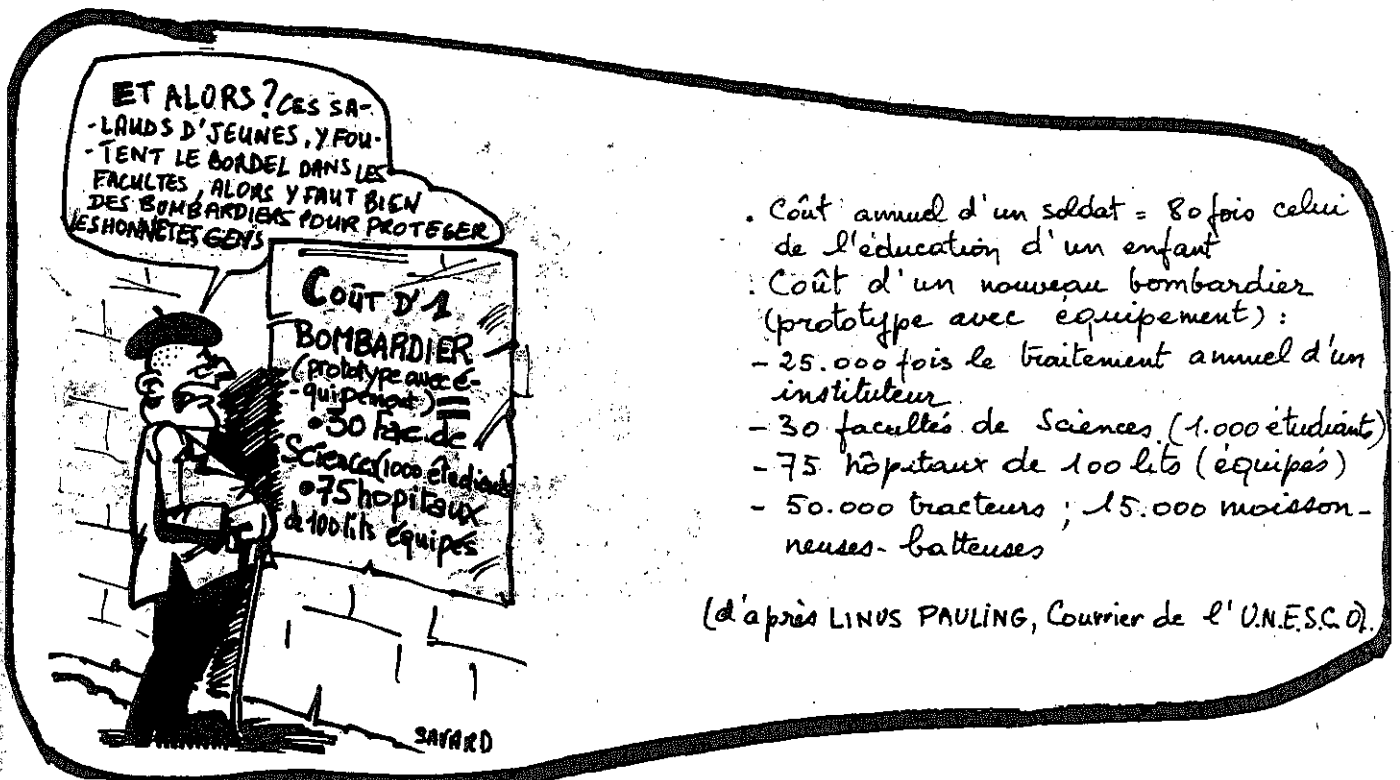 ET ALORS? CES SA-
-LAUDS D'JEUNES, Y FOU-
-TENT LE BORDEL DANS LES
FACULTES, ALORS Y FAUT BIEN
DES BOMBARDIERS POUR PROTEGER
LES HONNETES GENS
COÛT D'1
BOMBARDIER
(prototype avec é-
-quipement) =
•30 Fac de
Sciences (1000 étudiants)
•75 hopitaux
de 100 lits équipés
SAVARD
. Coût annuel d'un soldat = 80 fois celui
de l'éducation d'un enfant
. Coût d'un nouveau bombardier
(prototype avec équipement) :
- 25.000 fois le traitement annuel d'un
instituteur
- 30 facultés de Sciences (1.000 étudiants)
- 75 hôpitaux de 100 lits (équipés)
- 50.000 tracteurs ; 15.000 moisson-
neuses-batteuses
(d'après LINUS PAULING, Courrier de l'U.N.E.S.C.O).